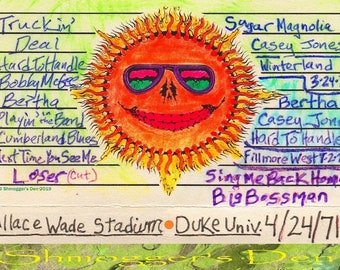 Truckin'
Deal
Hard To Handle
Bobby McGee
Bertha
Playin' in the Band
Cumberland Blues
Next Time You See Me
Loser (cut)
© Shmoegger's Den 2013
Sugar Magnolia
Casey Jones
Winterland
3-24-
Bertha
Casey Jon
Hard To Handle
Fillmore West
Sing Me Back Hom
Big Bossman
llace Wade Stadium • Duke Univ. 4/24/71
Shmoegger's Den